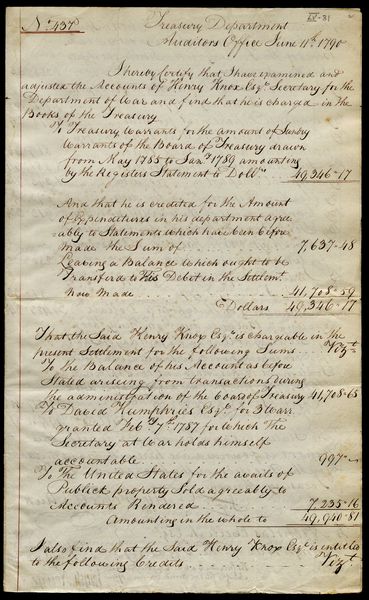 No. 437
IX-31
Treasury Department
Auditors Office June 11th. 1790
I hereby Certify that I have examined and
adjusted the Accounts of Henry Knox Esqr. Secretary for the
Department of War and find that he is charged in the
Books of the Treasury
To Treasury Warrants for the Amount of Sundry
Warrants of the Board of Treasury drawn
from May 1785 to Jany. 1789 amounting
by the Registers Statement to Dolls. 49,346-17
And that he is credited for the Amount
of Expenditures in his department agree-
ably to Statements which have been before
made the Sum of 7,637-48
Leaving a Balance which ought to be
Transferd to His Debit in the Settlemt.
now Made 41,708-59
Dollars 49,346-17
That the Said Henry Knox Esqr. is chargeable in the
present Settlement for the following Sums Vizt
To the Balance of his Account as before
Stated arising from transactions during
the administration of the Board of Treasury 41,708-65
To David Humphries Esqr. for 3 Warr.
granted Feby. 7th. 1787 for which The
Secretary at War holds himself
accountable 997-
To The United States for the avails of
Publick property Sold agreeably to
Accounts Rendered 7,235-16
Amounting in the whole to 49,940-81
I also find that the Said Henry Knox Esqr. is entitled
to the following Credits Vizt